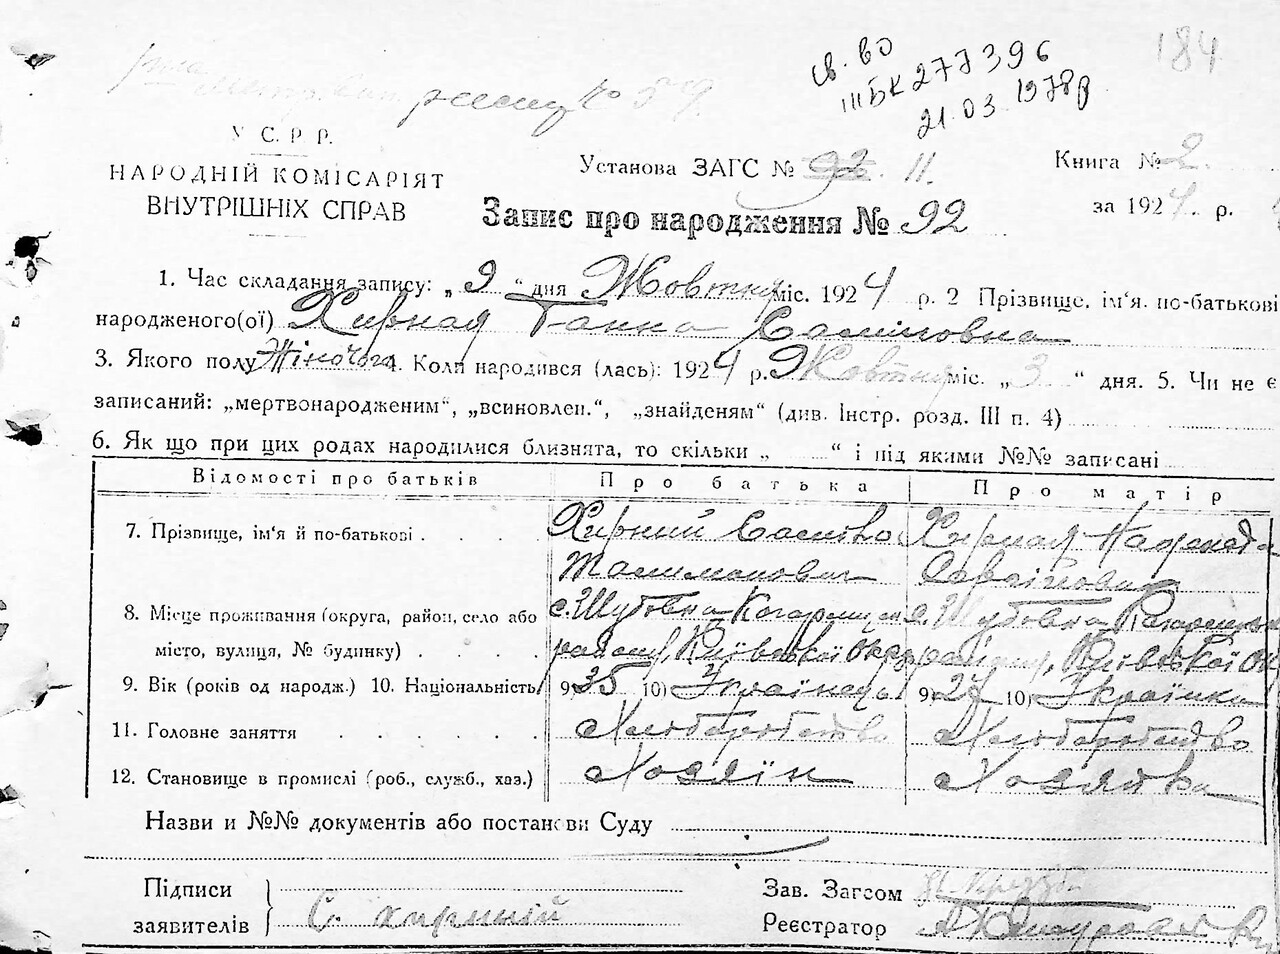 св. во
III БК 277396
21.03.1978р
184
У С. Р Р.
НАРОДНІЙ КОМІСАРІЯТ
ВНУТРІШНІХ СПРАВ
Установа ЗАГС № 11.
Книга № 2.
за 1924 р.
Запис про народження № 92
1. Час складання запису: „9“ дня Жовтня міс. 1924 р. 2 Прізвище, ім‘я. по-батькові
народженого(ої) Хирная Ганна
3. Якого полу Жіночого 4. Коли народився (лась): 1924 р. Жовтня міс. „3“ дня. 5. Чи не є
записаний: „мертвонародженим“, „всиновлен.“, „знайденям“ (див. Інстр. розд. III п. 4)
6. Як що при цих родах народилися близнята, то скільки „ “ і під якими №№ записані
Відомості про батьків Про батька Про матір
7. Прізвище, ім‘я й по-батькові Хирний Хирная
8. Місце проживання (округа, район, село або с. Шубовка с. Шубовка
місто, вулиця, № будинку) району, Київської Окр району, Київської Ок
9. Вік (років од народж.) 10. Національність 9) 35 10) Українець 9) 27 10) Українка
11. Головне заняття Хлеборобство Хлеборобство
12. Становище в промислі (роб., служб., хаз.) Хозяїн Хозяйка
Назви и №№ документів або постанови Суду
Підписи
заявителів С. Хирний
Зав. Загсом
Реєстратор